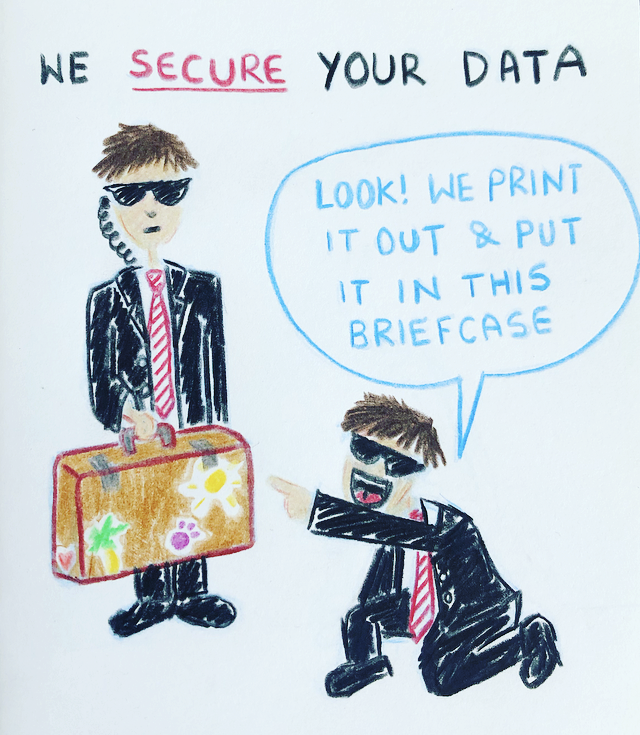 WE SECURE YOUR DATA
LOOK! WE PRINT
IT OUT & PUT
IT IN THIS
BRIEFCASE